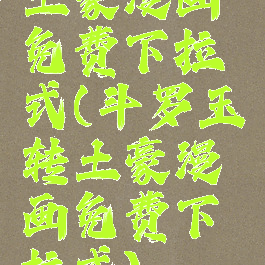 土豪漫画
免费下拉
式(斗罗玉
转土豪漫
画免费下
拉式)